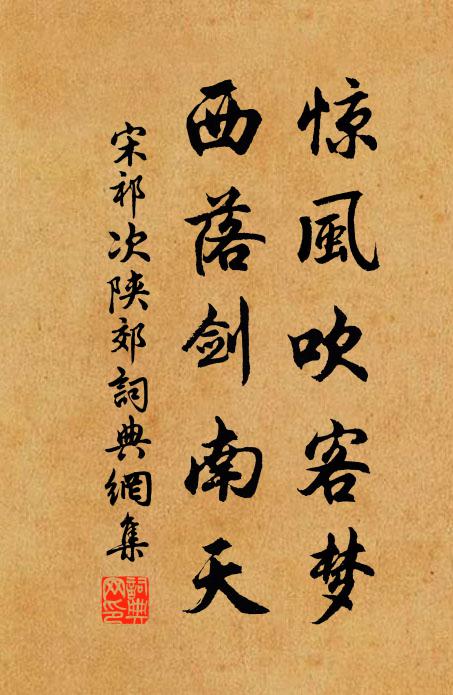 惊風吹客梦
西落剑南天
宋祁次陕郊詞典網集
詞典网印